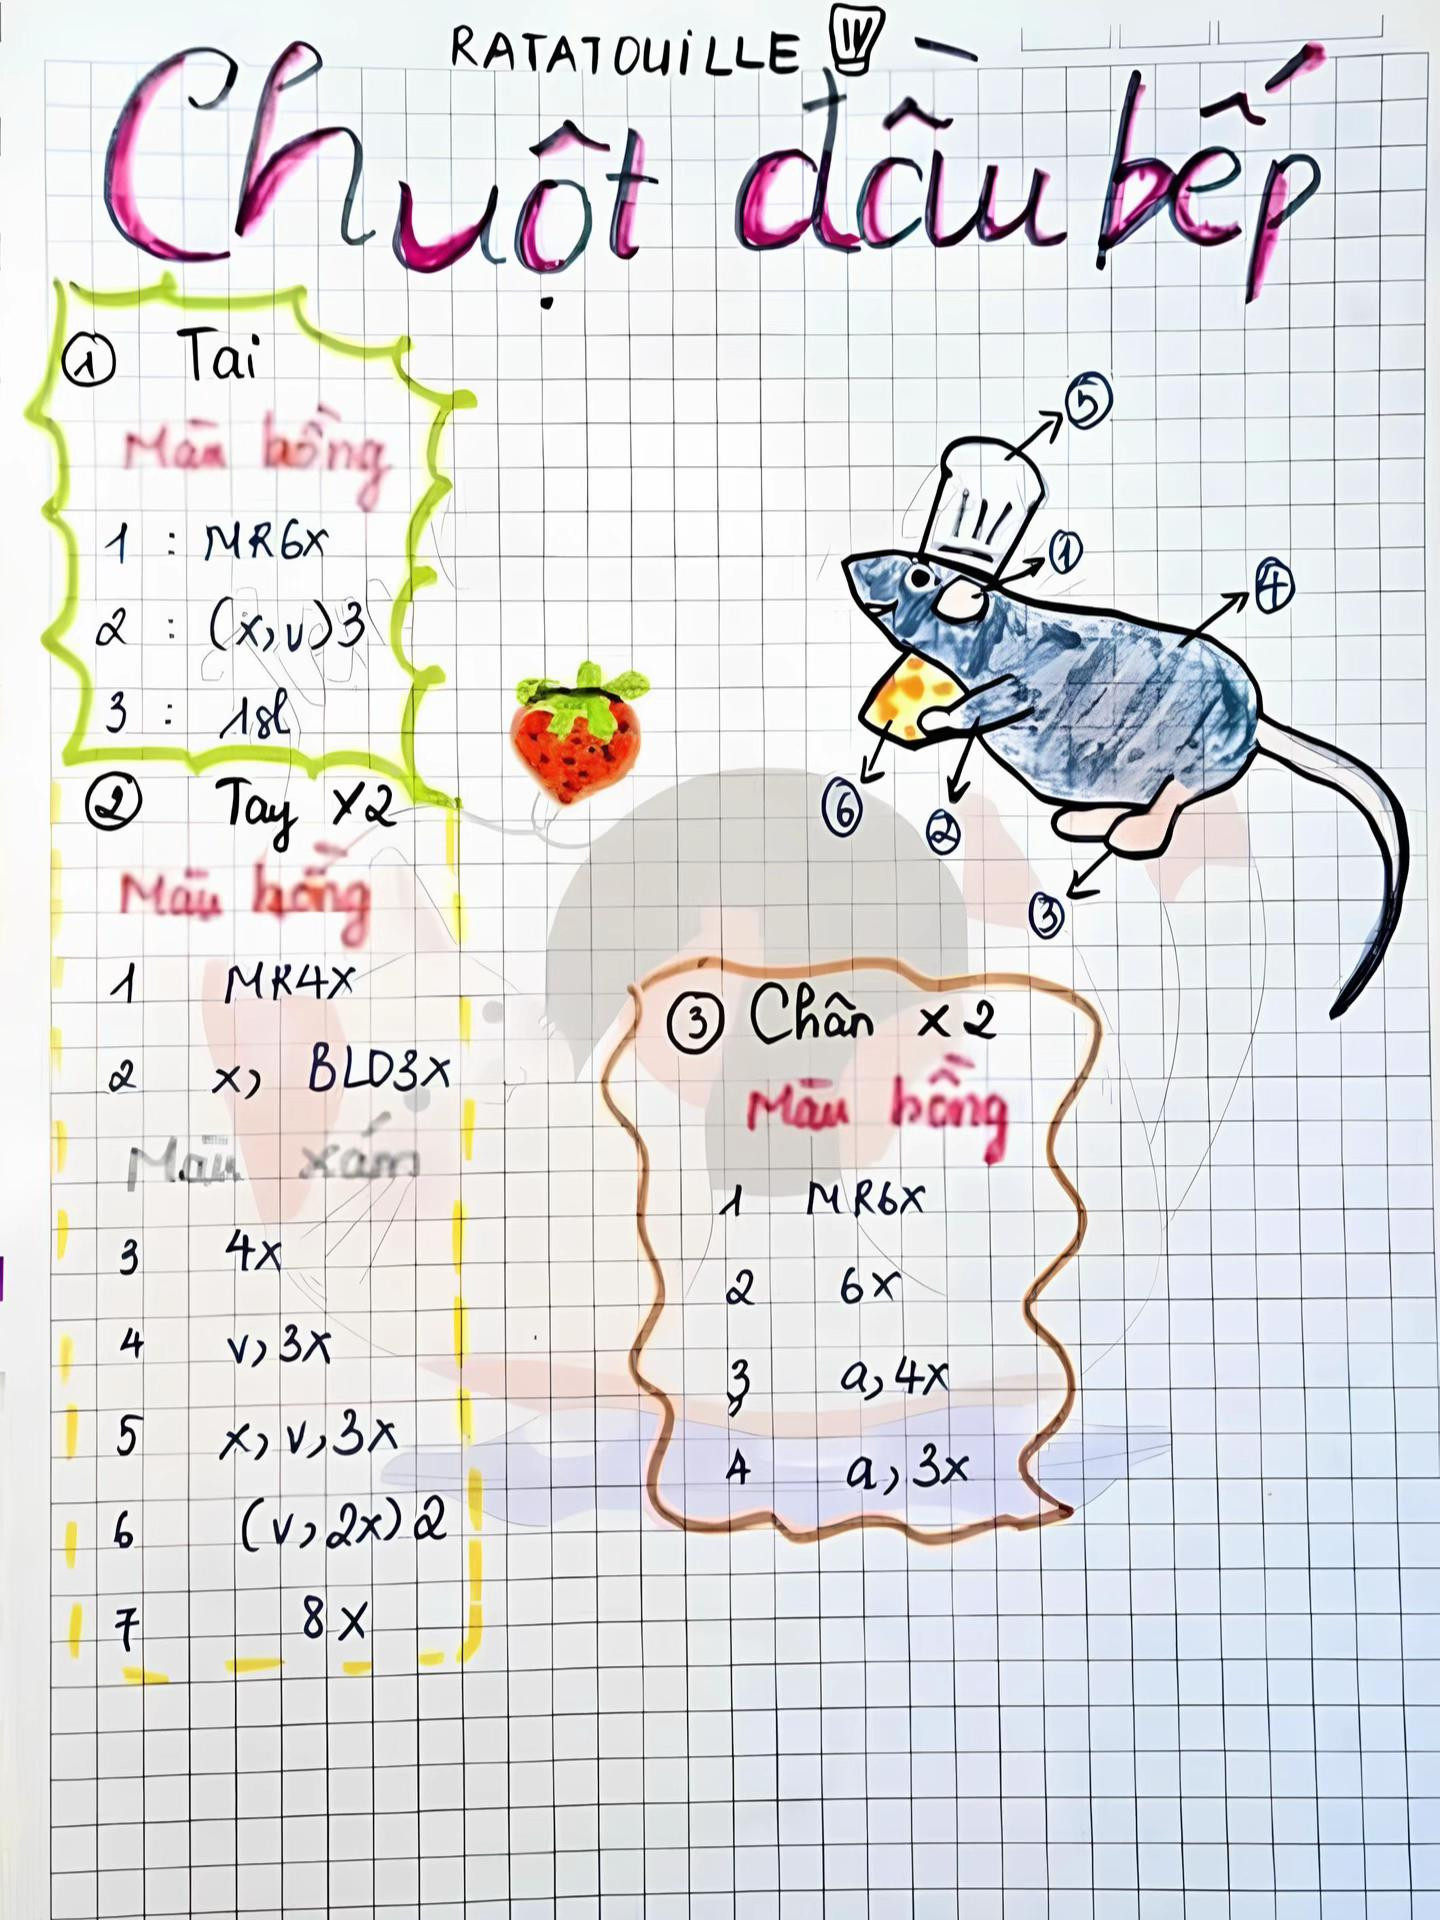 RATATOUiLLE
Chuột đầu bếp
① Tai
Màu hồng
1 : MR6x
2 : (x,v)3
3 : 1sl
② Tay x2
Màu hồng
1 MR4x
2 x, BLO3x
Màu xám
3 4x
4 v,3x
5 x,v,3x
6 (v,2x)2
7 8x
⑤
①
④
⑥
②
③
③ Chân x2
Màu hồng
1 MR6x
2 6x
3 a,4x
4 a,3x